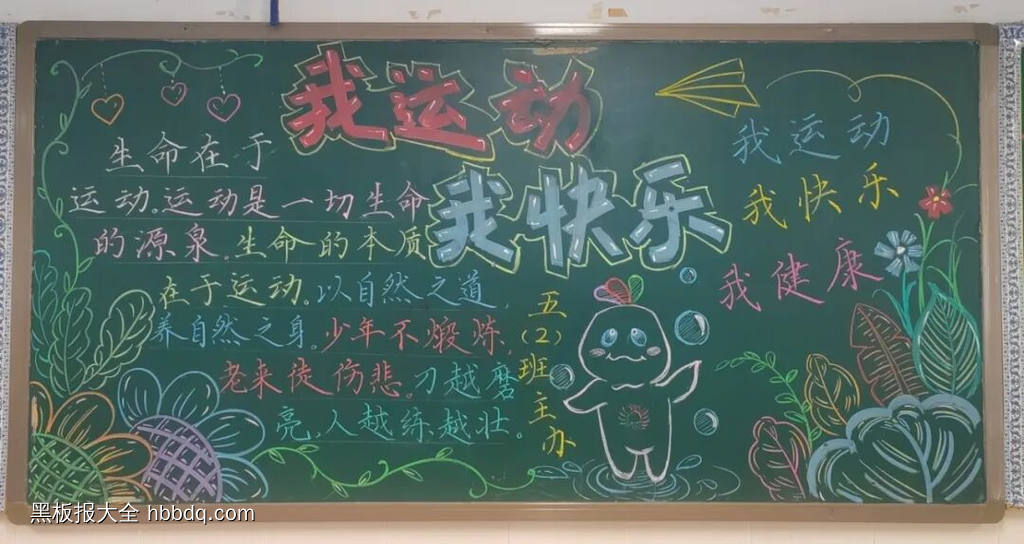 我运动
我快乐
生命在于
运动。运动是一切生命
的源泉。生命的本质
在于运动。以自然之道,
养自然之身。少年不煅炼,
老来徒伤悲。刀越磨
亮,人越练越壮。
五
(2)
班
主
办
我运动
我快乐
我健康
黑板报大全 hbbdq.com